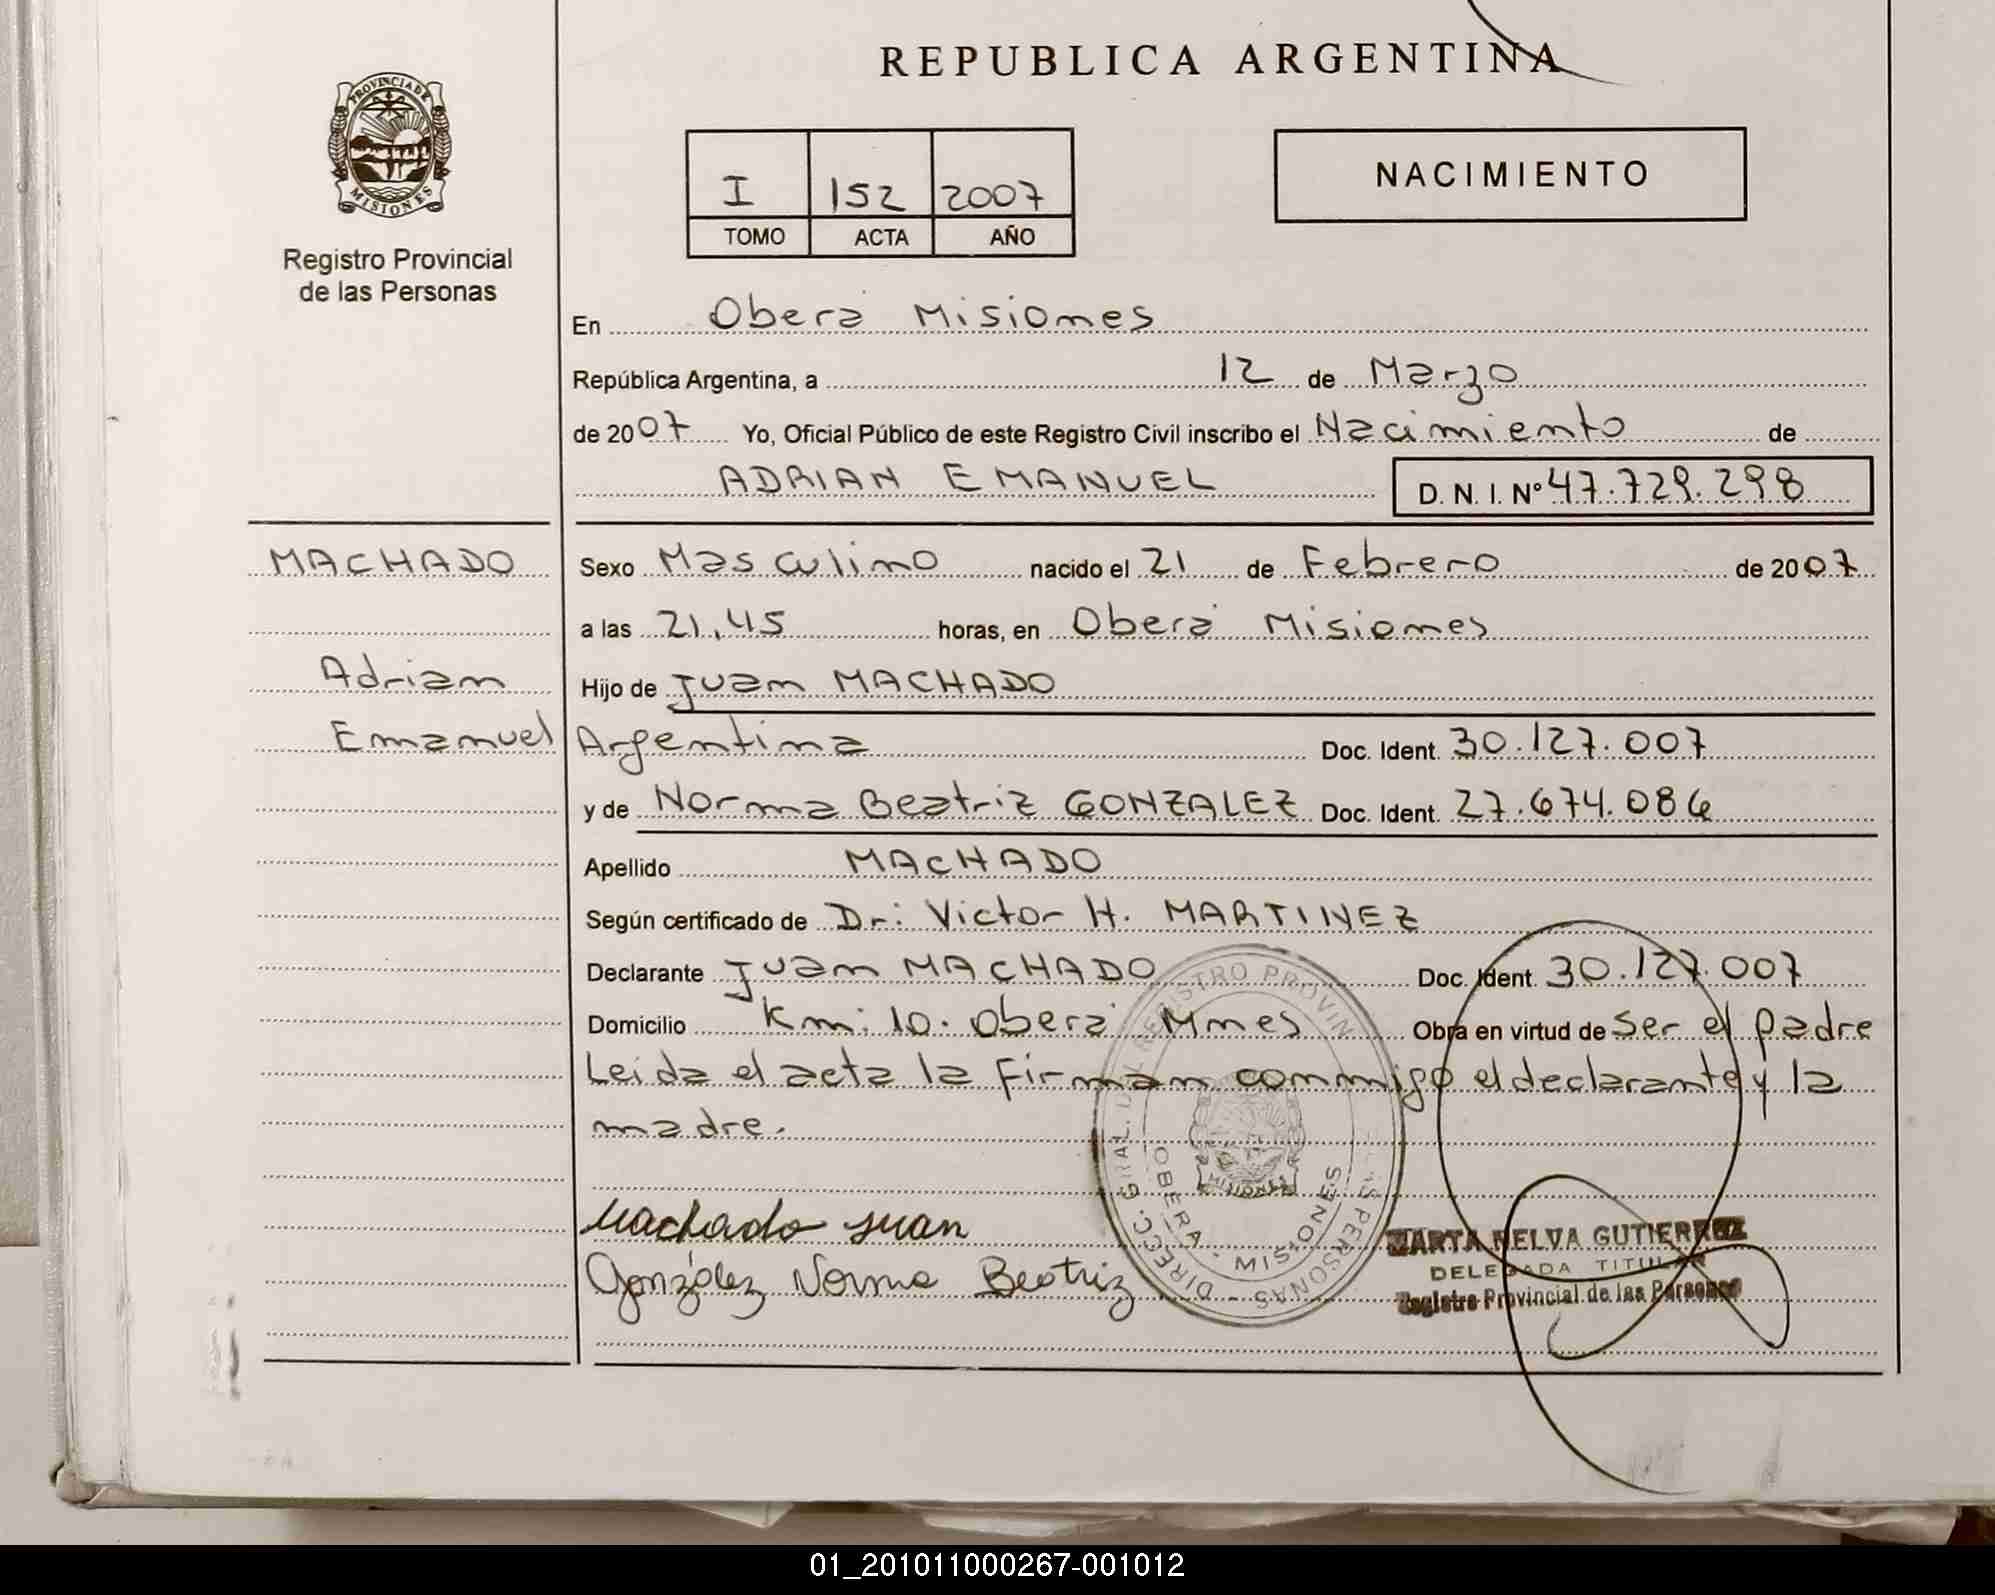 REPUBLICA ARGENTINA
PROVINCIA DE
MISIONES
Registro Provincial
de las Personas
I 152 2007
TOMO ACTA AÑO
NACIMIENTO
En Oberá Misiones
República Argentina, a 12 de Marzo
de 2007 Yo, Oficial Público de este Registro Civil inscribo el Nacimiento de
ADRIAN EMANUEL D. N. I. Nº 47.729.298
MACHADO Sexo Masculino nacido el 21 de Febrero de 2007
a las 21,45 horas, en Oberá Misiones
Adrian Hijo de Juan MACHADO
Emanuel Argentina Doc. Ident. 30.127.007
y de Norma Beatriz GONZALEZ Doc. Ident. 27.674.086
Apellido MACHADO
Según certificado de Dr: Victor H. MARTINEZ
Declarante Juan MACHADO Doc. Ident. 30.127.007
Domicilio Km: 10. Oberá Mnes Obra en virtud de ser el padre
Leida el acta la firman conmigo el declarante y la
madre.
Machado Juan
González Norma Beatriz
OBERA - MISIONES
MISIONES
MARTA NELVA GUTIERREZ
DELEGADA TITULAR
Registro Provincial de las Personas
01_201011000267-001012